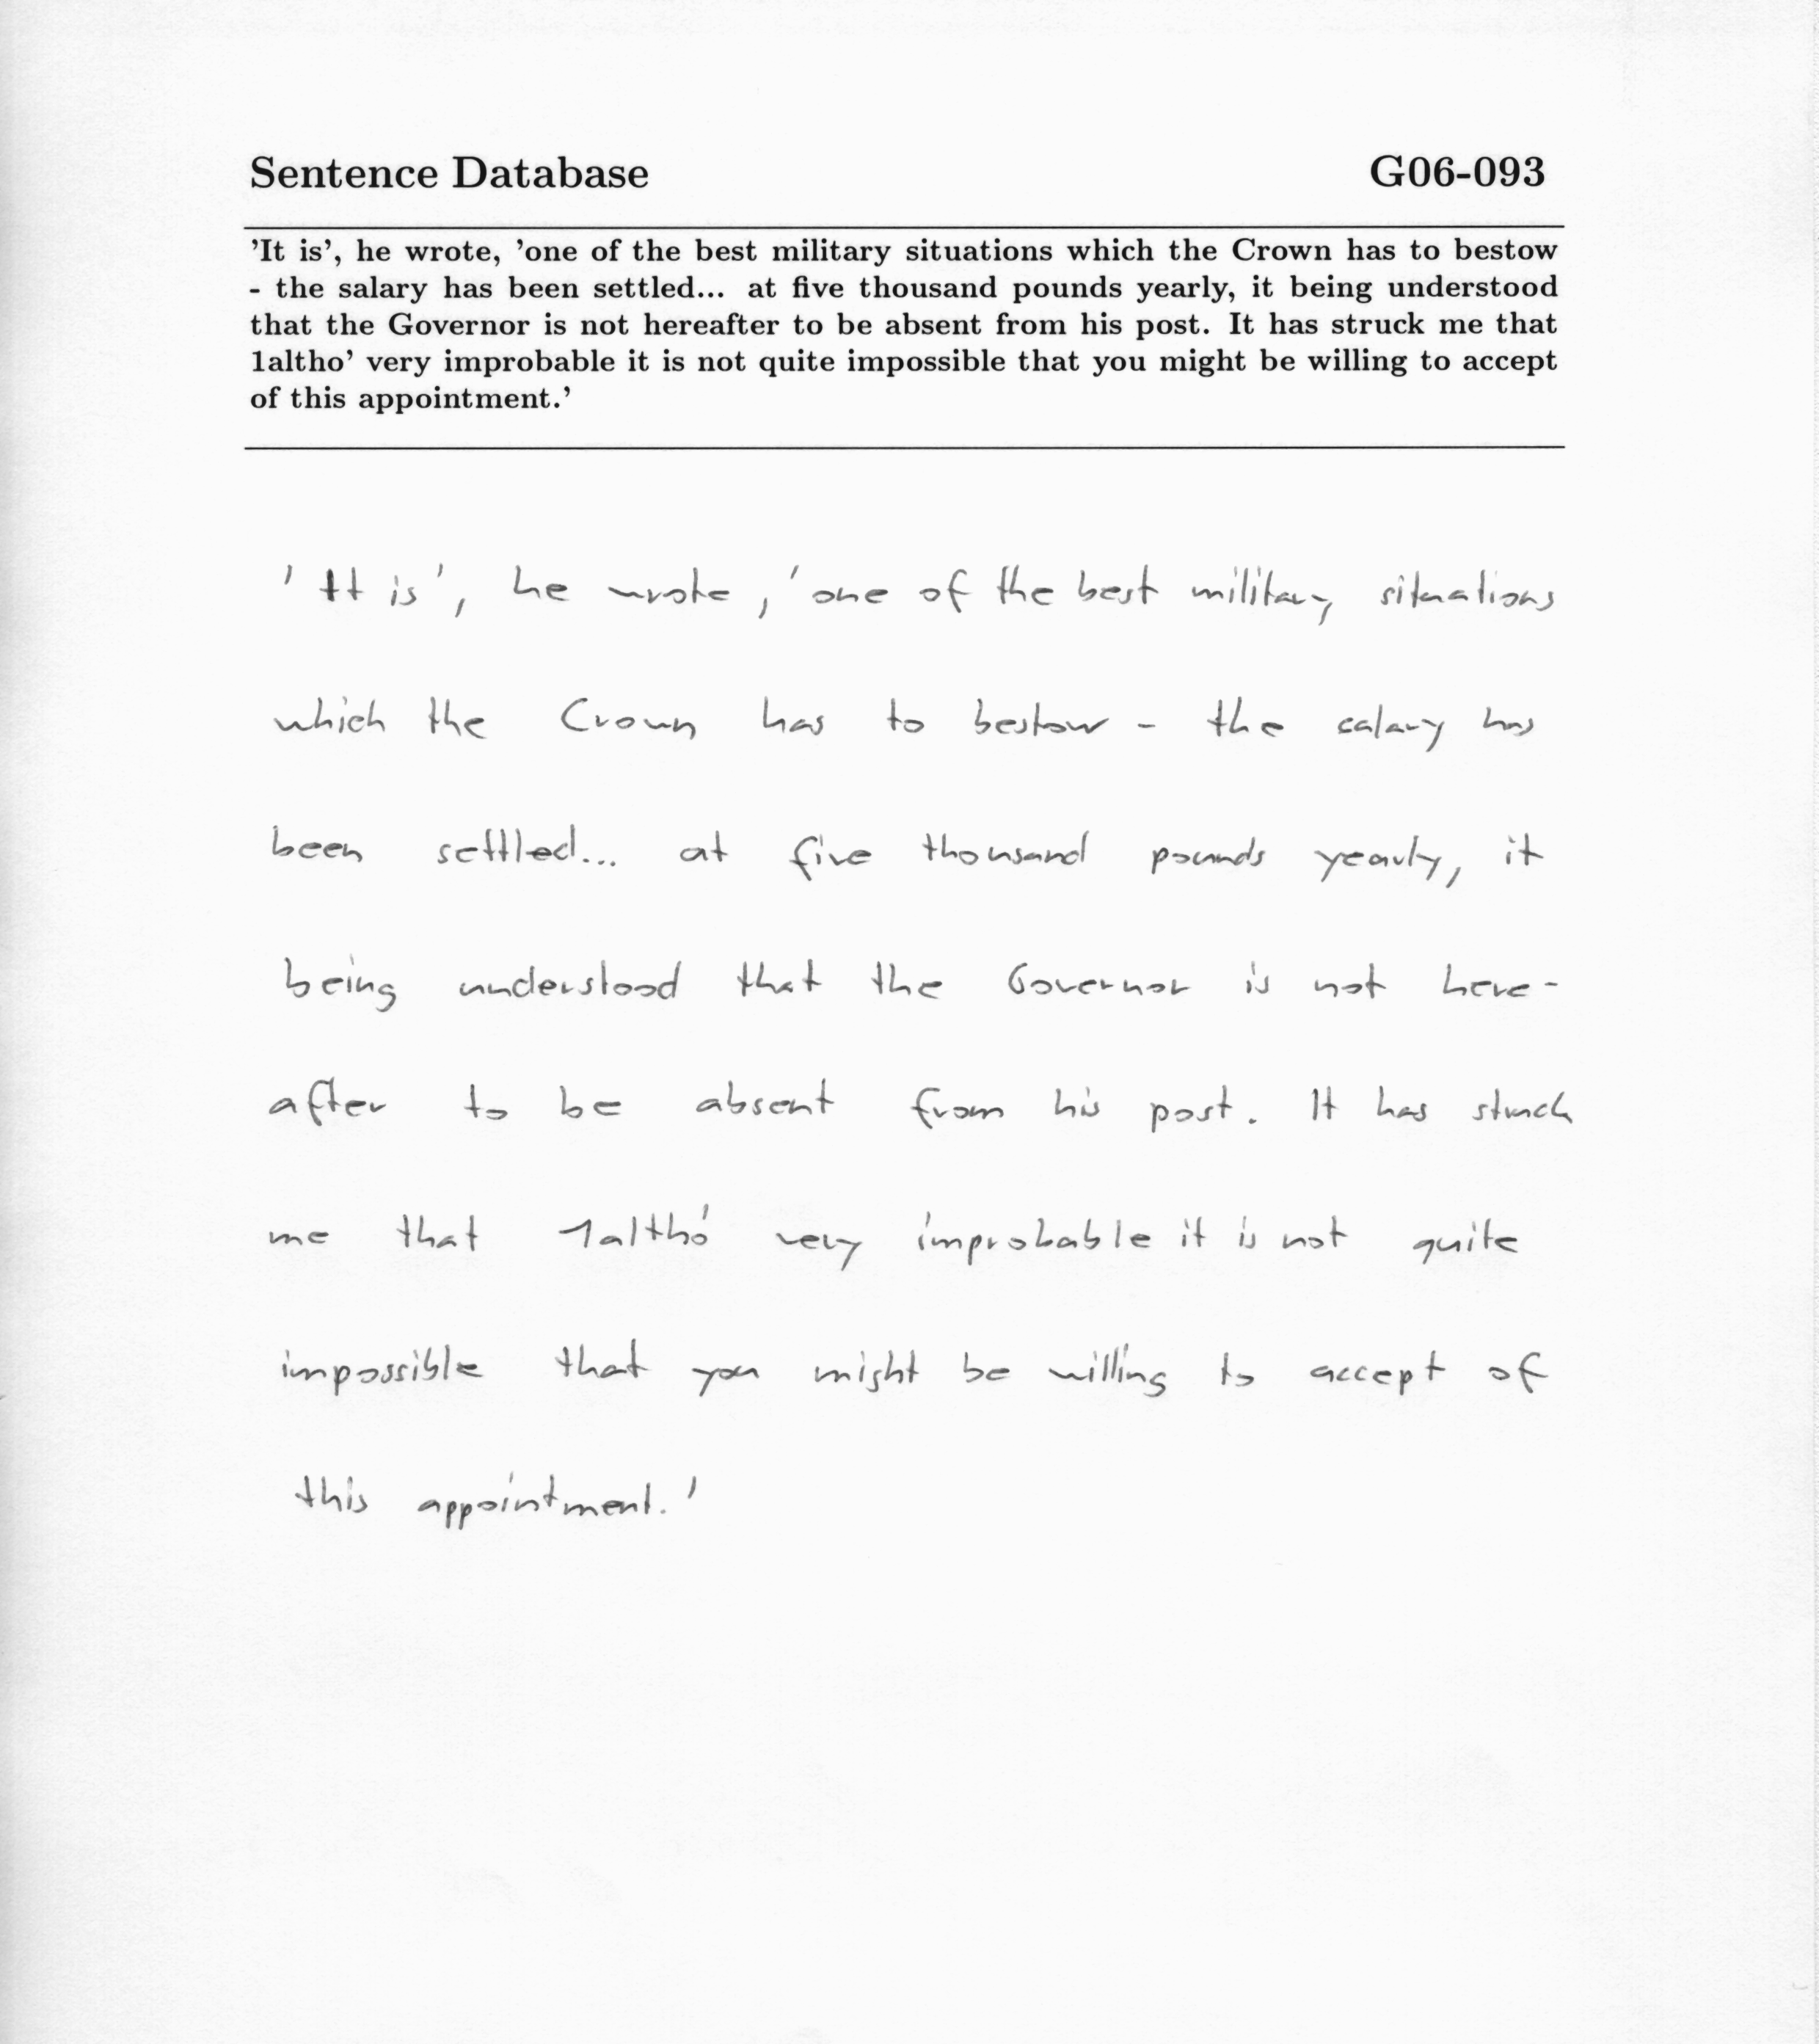 Sentence Database G06-093
'It is', he wrote, 'one of the best military situations which the Crown has to bestow
- the salary has been settled... at five thousand pounds yearly, it being understood
that the Governor is not hereafter to be absent from his post. It has struck me that
1altho' very improbable it is not quite impossible that you might be willing to accept
of this appointment.'
'It is', he wrote, 'one of the best military situations
which the Crown has to bestow - the salary has
been settled... at five thousand pounds yearly, it
being understood that the Governor is not here-
after to be absent from his post. It has struck
me that 1altho' very improbable it is not quite
impossible that you might be willing to accept of
this appointment.'